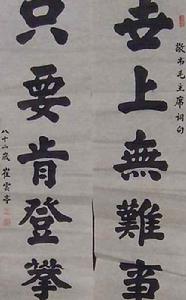 敬书毛主席詞句
世上無難事
只要肯登攀
八十二歲崔雲亭